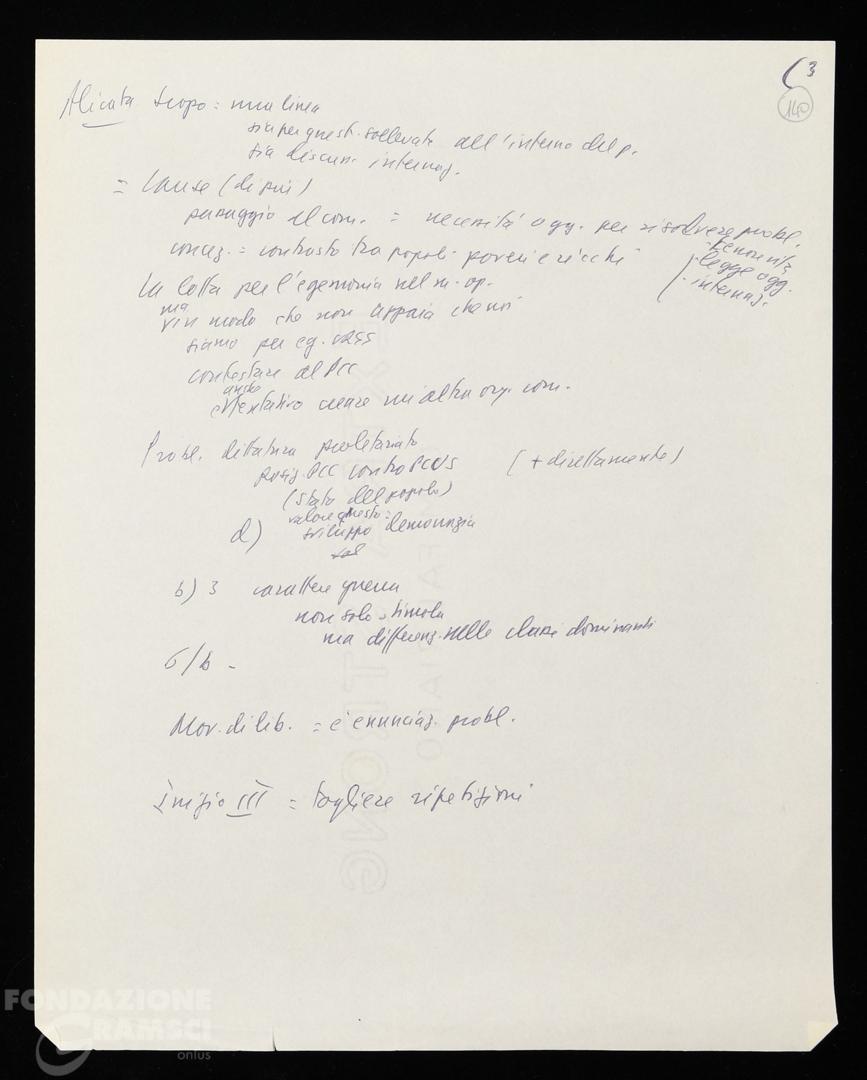 3
140
Alicata scopo = una linea
sia per quest. sollevate all'interno del p.
sia discuss. internaz.
= Cause (di più)
passaggio al com. = necessità ogg. per risolvere probl.
legge ogg.
internaz.
concez. = contrasto tra popoli poveri e ricchi
La lotta per l'egemonia nel m. op.
ma
in modo che non appaia che noi
siamo per eg. URSS
contestare al PCC
anche
tentativo creare un'altra org. com.
Probl. dittatura proletariato
posiz. PCC contro PCUS (+ direttamente)
(stato del popolo)
valore questo =
d) sviluppo democrazia
b) 3 carattere guerra
non solo
ma differenz. nelle classi dominanti
6/b -
Mov. di lib. = è enunciaz. probl.
Inizio III = togliere ripetizioni
FONDAZIONE
GRAMSCI
onlus